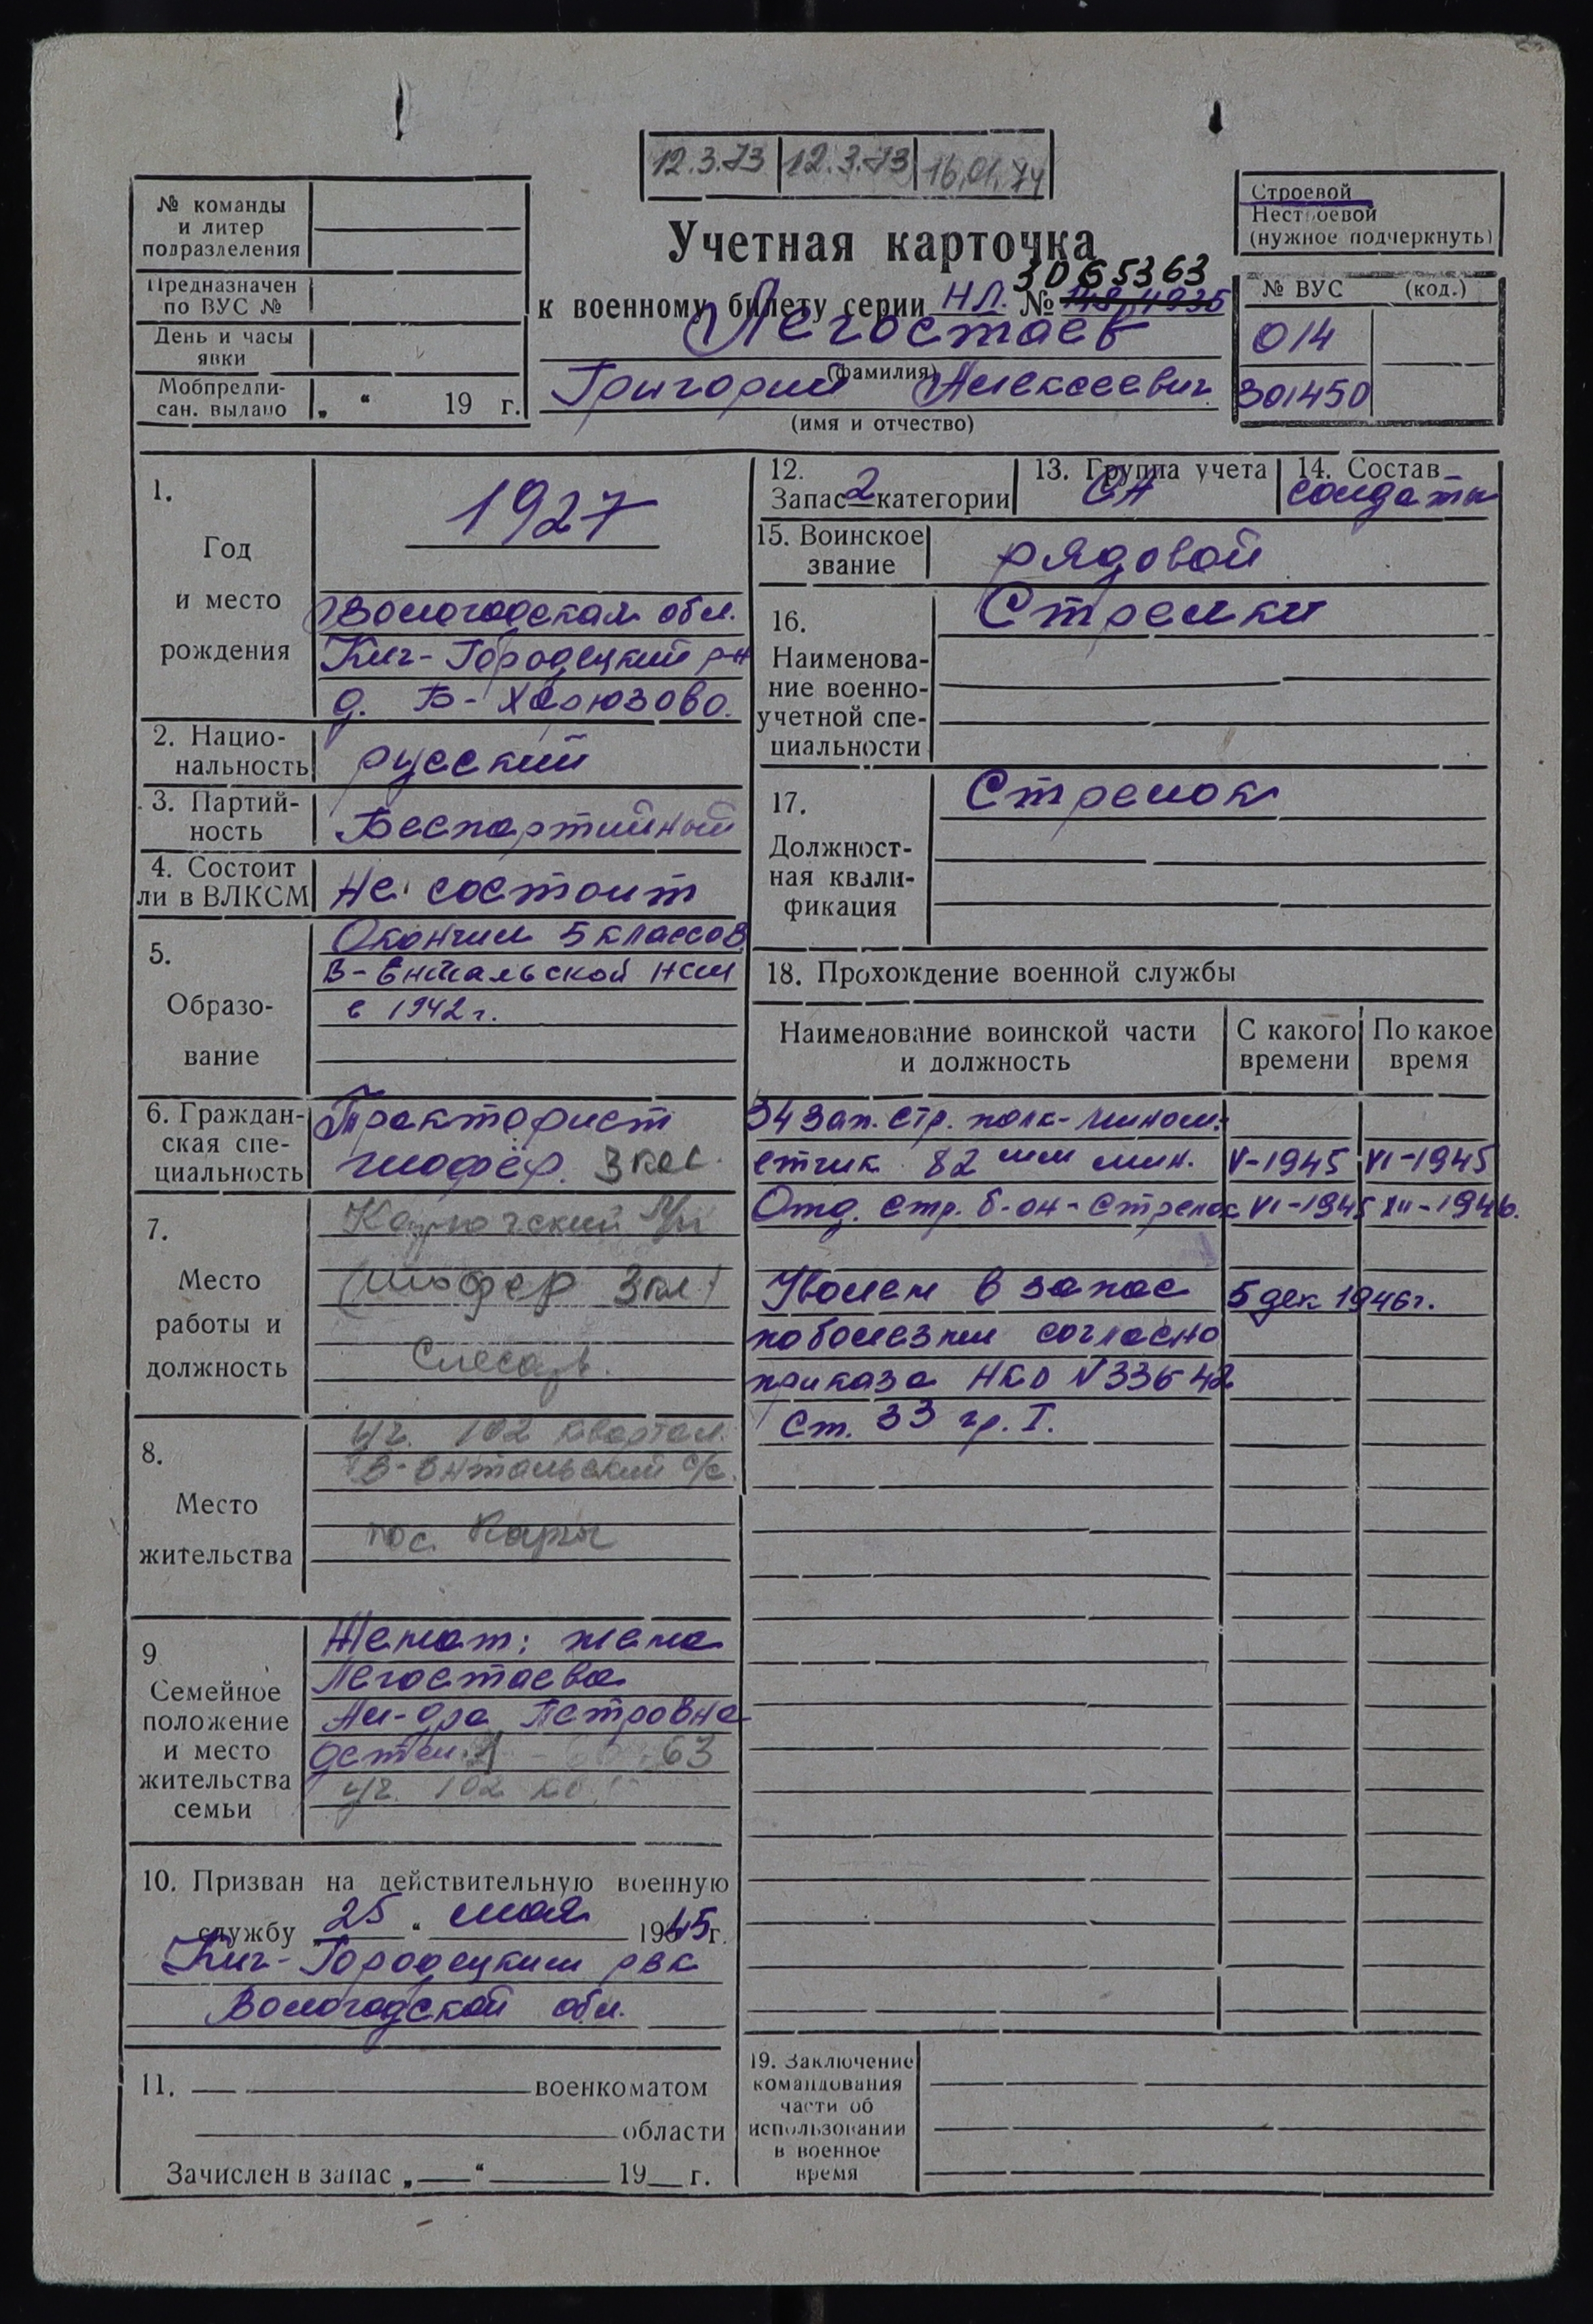 12.3.73 12.3.73 16.01.74
№ команды
и литер
подразделения
Предназначен
по ВУС №
День и часы
явки
Мобпредпи-
сан. выдано „ “ 19 г.
Учетная карточка
3065363
к военному билету серии НЛ. №
Легостаев
(фамилия)
Григорий Алексеевич
(имя и отчество)
Строевой
Нестроевой
(нужное подчеркнуть)
№ ВУС (код.)
014
301450
1.
Год
и место
рождения
1927
Вологодская обл.
Кич-Городецкий р-н
д. Б-Харюзово.
2. Нацио-
нальность
русский
3. Партий-
ность
Беспартийный
4. Состоит
ли в ВЛКСМ
Не состоит
5.
Образо-
вание
Окончил 5 классов
В-Ентальской НСШ
в 1942 г.
6. Граждан-
ская спе-
циальность
Тракторист
шофёр. 3 кл.
7.
Место
работы и
должность
(шофер 3 кл)
Слесарь.
8.
Место
жительства
уч. 102 квартал.
В-Ентальский с/с.
пос.
9
Семейное
положение
и место
жительства
семьи
Женат: жена
Легостаева
Ал-дра Петровна
детей 63
уч. 102 кв.
10. Призван на действительную военную
службу „25“ мая 1945 г.
Кич-Городецким рвк
Вологодской обл.
11. военкоматом
области
Зачислен в запас „ “ 19 г.
12.
Запас 2 категории
13. Группа учета
СА
14. Состав
солдаты
15. Воинское
звание
рядовой
16.
Наименова-
ние военно-
учетной спе-
циальности
Стрелки
17.
Должност-
ная квали-
фикация
Стрелок
18. Прохождение военной службы
Наименование воинской части
и должность
С какого
времени
По какое
время
34 зап. стр. полк-мином-
етчик 82 мм мин. V-1945 VI-1945
Отд. стр. б-он-стрелок VI-1945 XII-1946.
Уволен в запас 5 дек 1946 г.
по болезни согласно
приказа НКО N 336-42
Ст. 33 гр. I.
19. Заключение
командования
части об
использовании
в военное
время